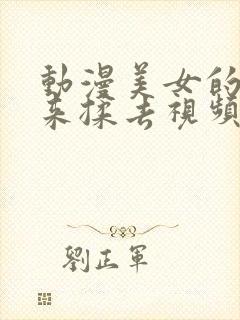 動漫美女的
来揉去視頻
劉正軍